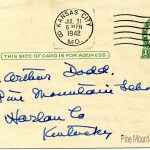 KANSAS CITY
JUL 21
6 PM
1942
MO.
THIS SIDE OF CARD IS FOR ADDRESS
Arthur Dodd,
Pine Mountain
Harlan Co
Kentucky
Pine Mount